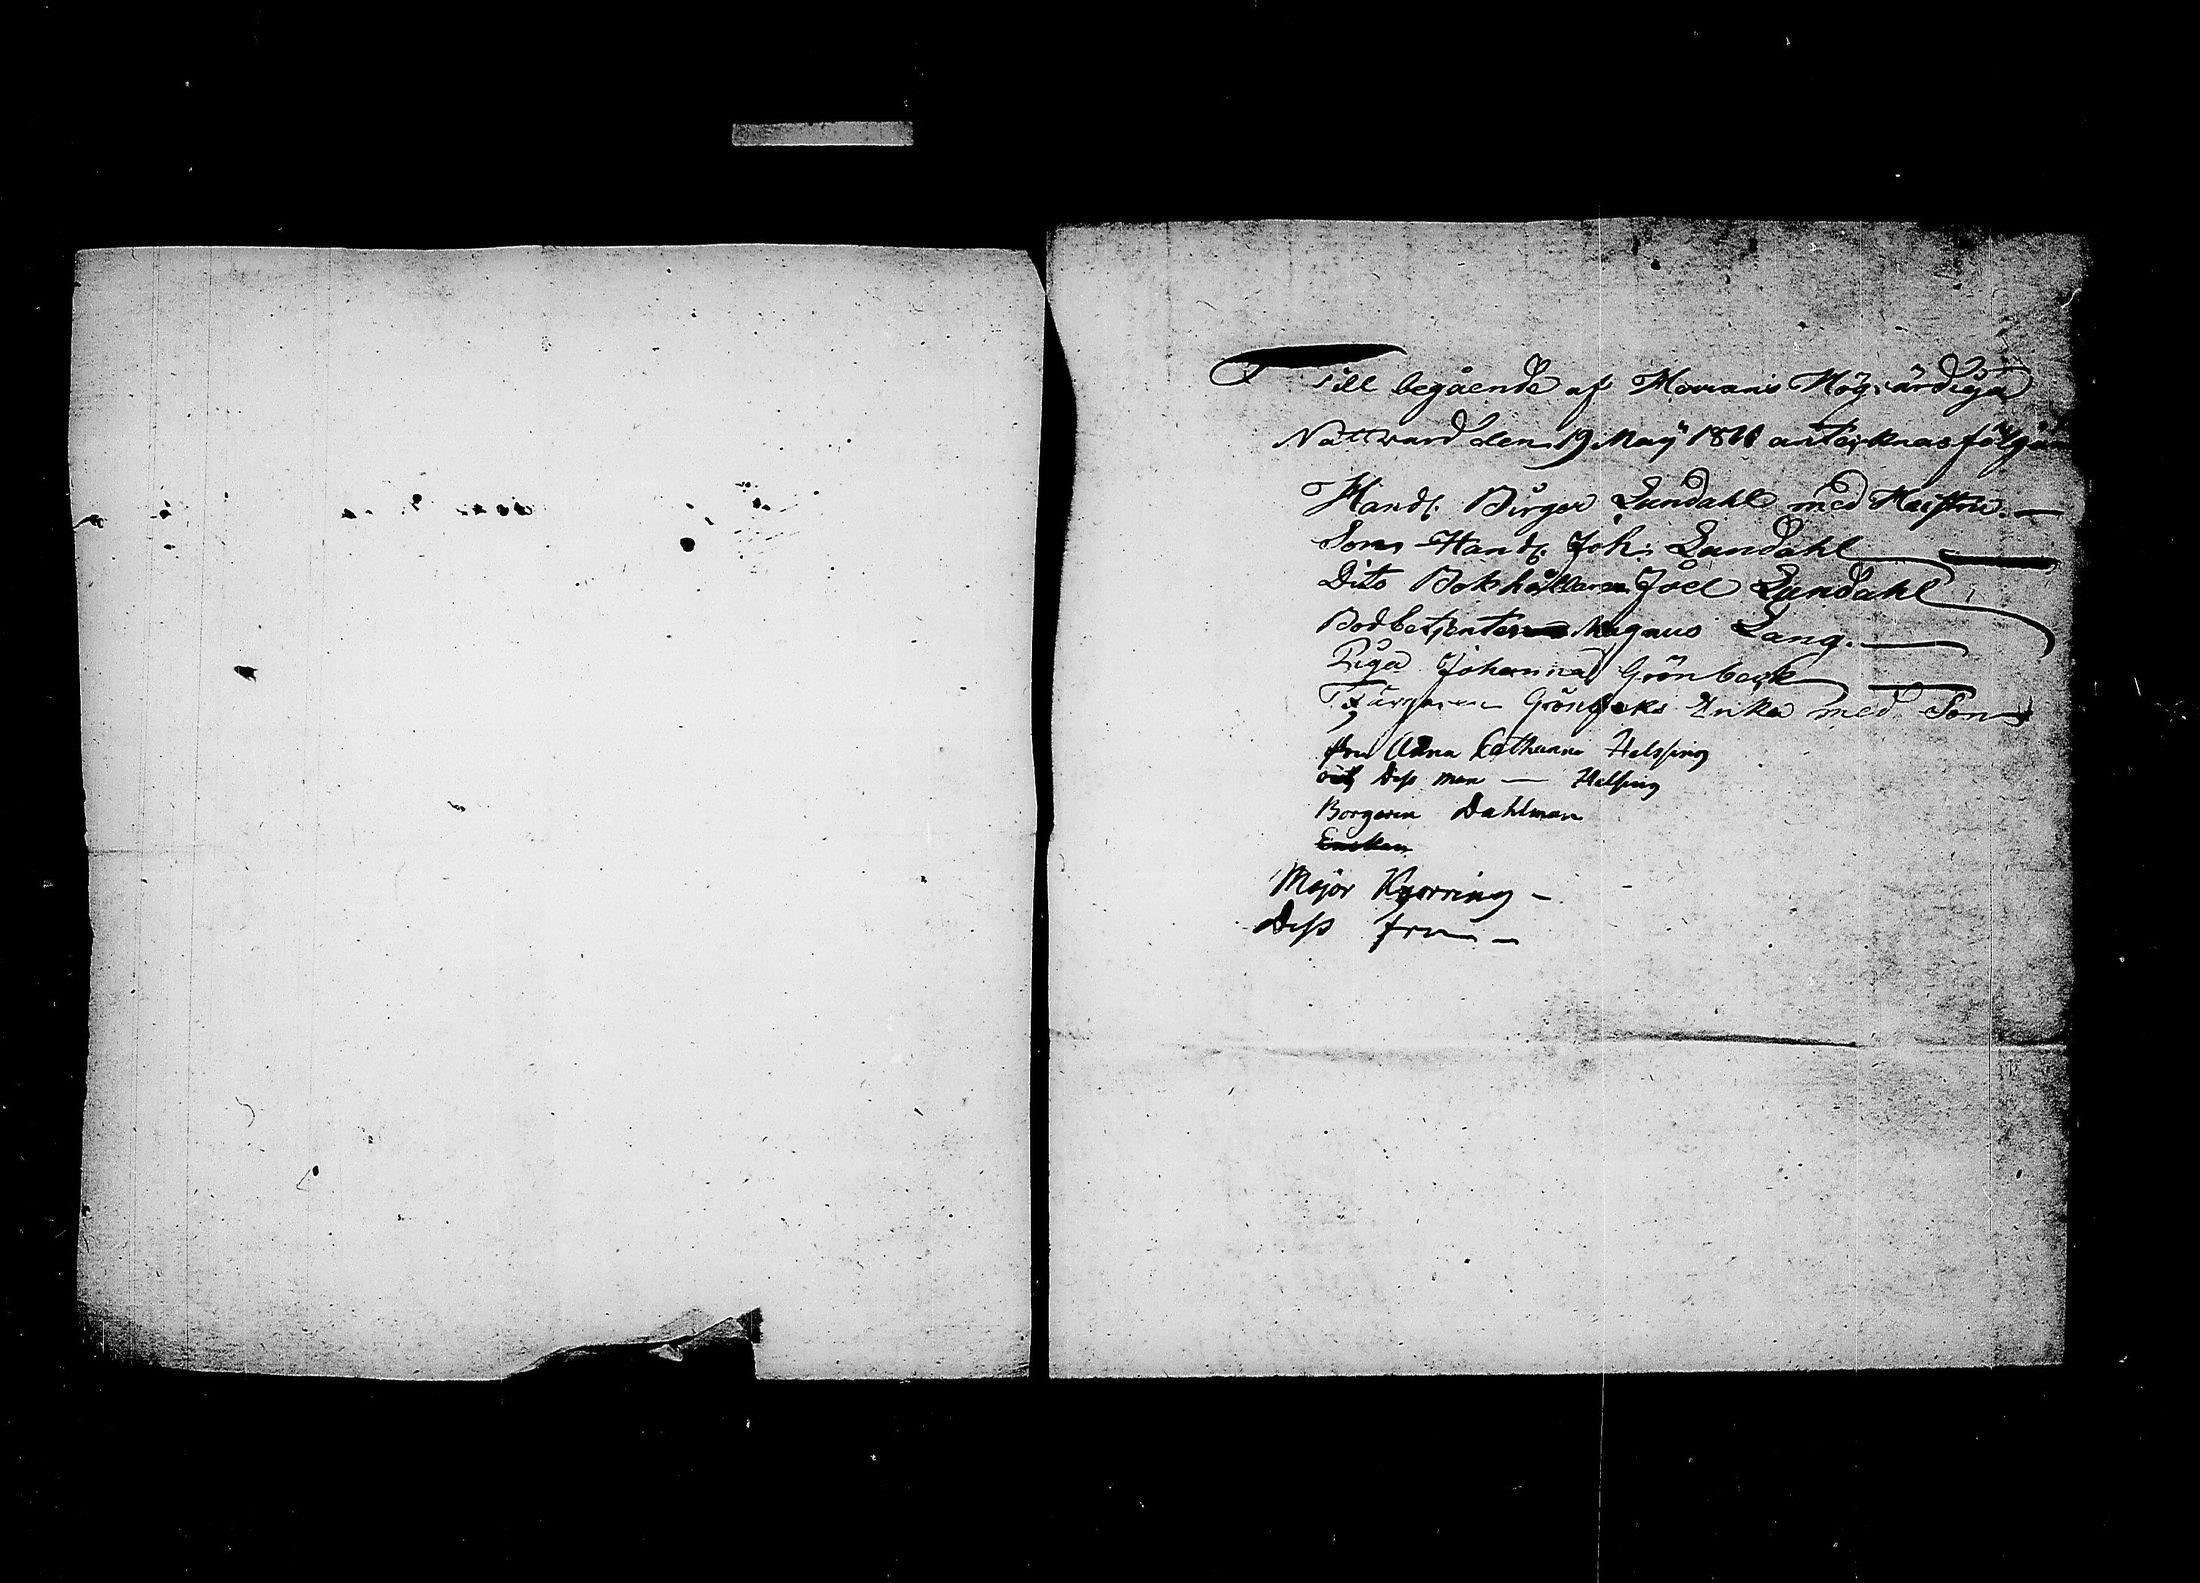 Till begående af Herrans Högvärdiga
Nattward den 19 Maÿ 1811 anteknas följan
Handl. Birger Lundahl med Hustru. —
Son Handl. Joh: Lundahl
Dito Bokhållaren Joel Lundahl
Bodbetjenten Magnus Lang. —
Piga Johanna Grönbeck
Färgaren Grönbeks Enka med Son
fru Anna Catharina Helsing
och Dess man — Helsing
Borgaren Dahlman
Enckan
Major Knorring —
Dess fru —